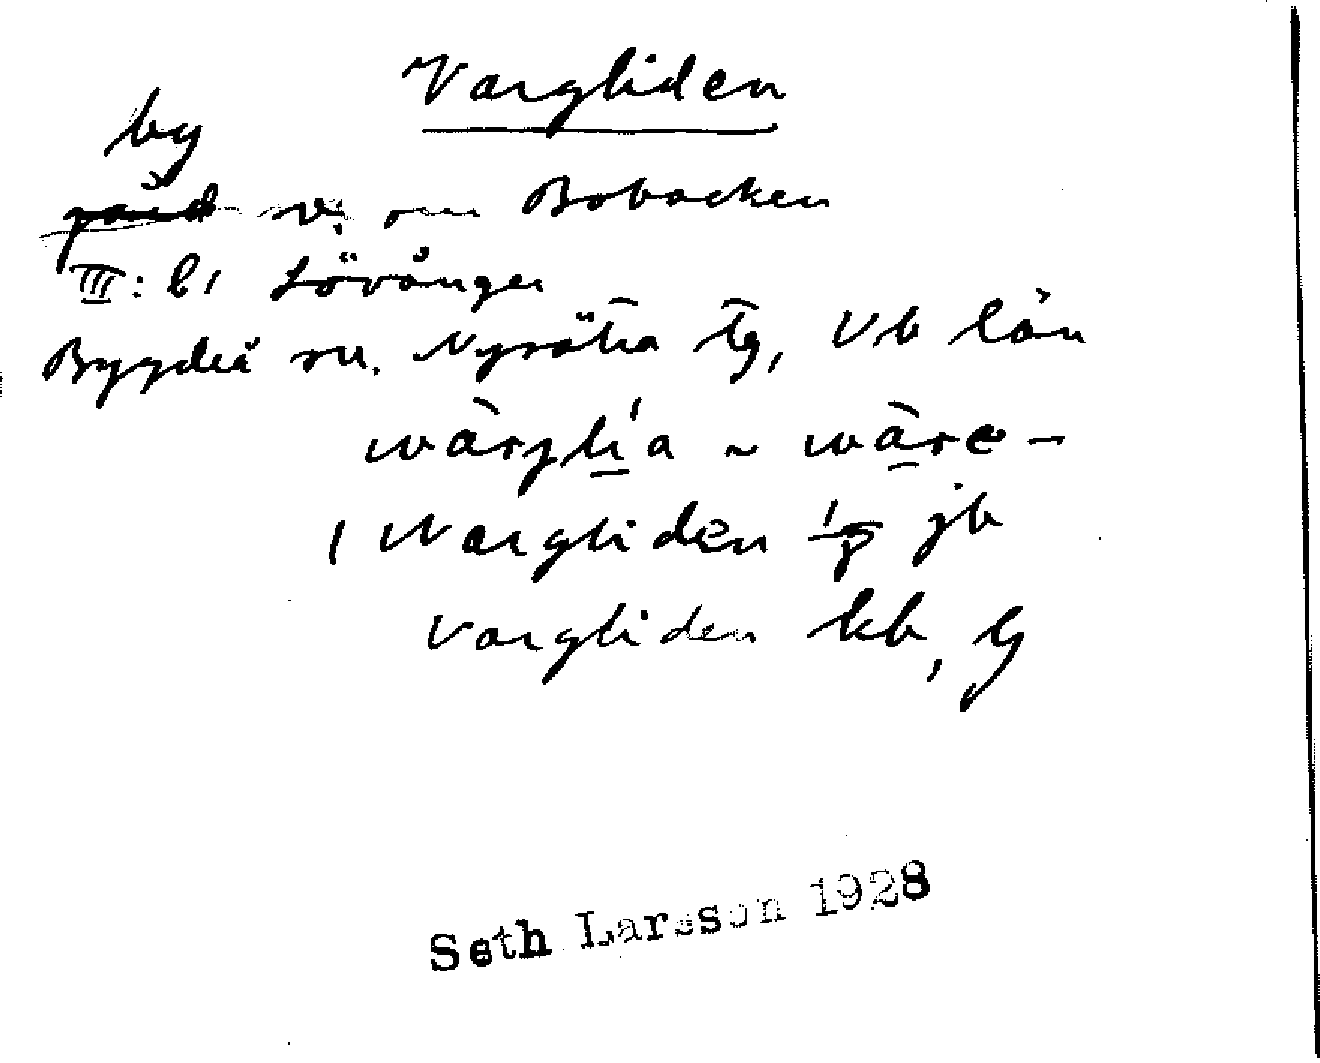 Vargliden
by
påud v. om Bobacken
III: b1 Lövånger
Bygdeå sn. Nysätra tg, Vb län
wàrgli'a ~ wàre-
1 Wargliden 1/p jb
Vargliden kb, lg
Seth Larsson 1928